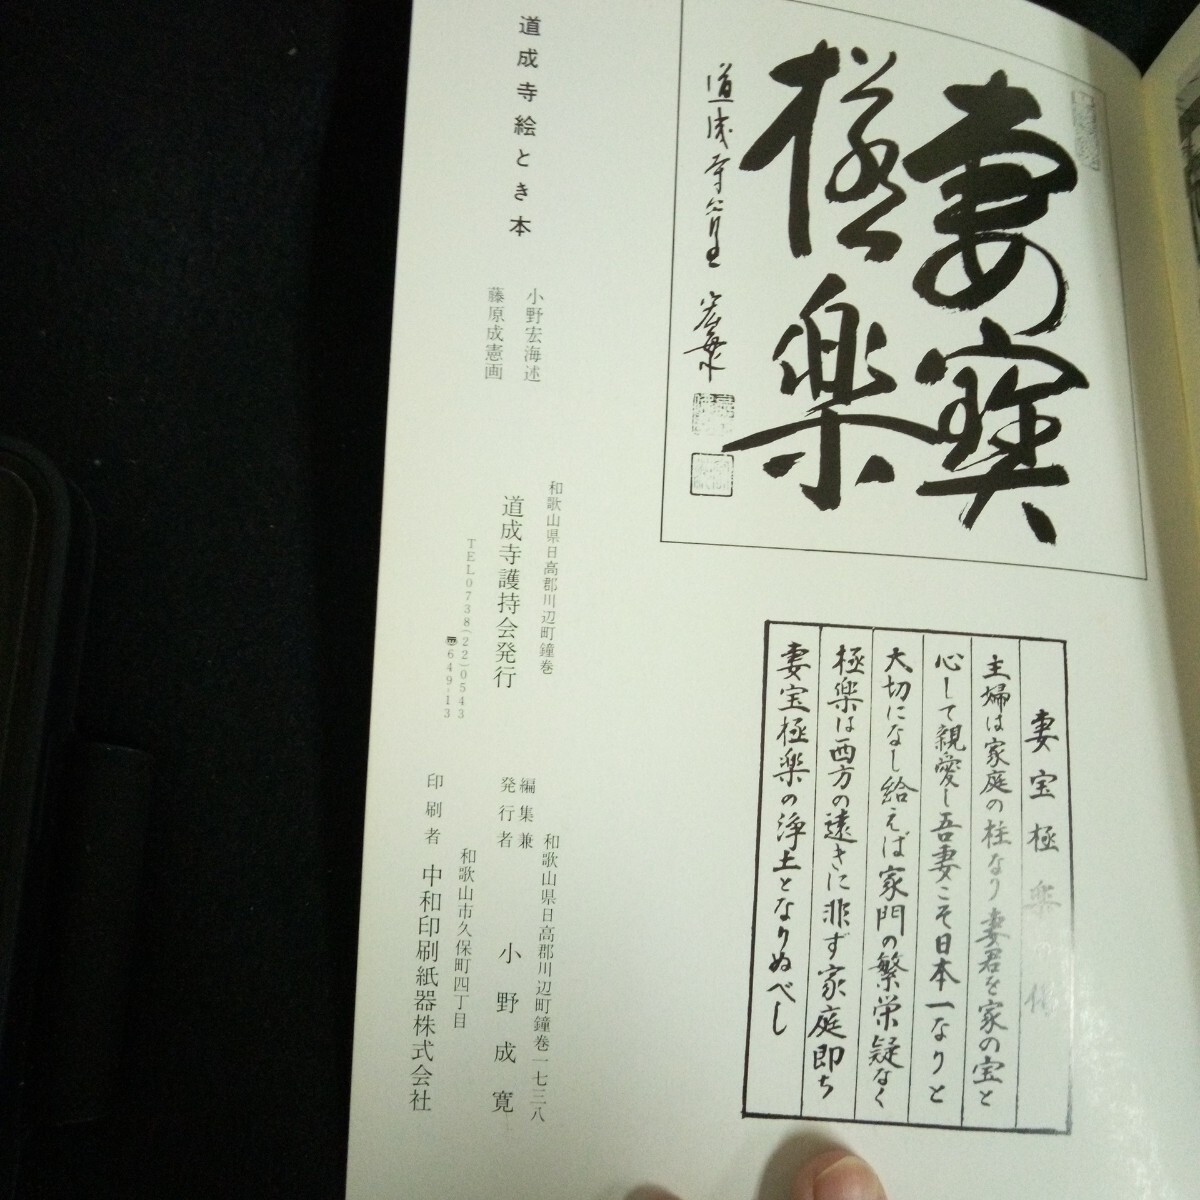 妻寳
極楽
道成寺
妻宝極楽の
主婦は家庭の柱なり妻君を家の宝と
心して親愛し吾妻こそ日本一なりと
大切になし給えば家門の繁栄疑なく
極楽は西方の遠きに非ず家庭即ち
妻宝極楽の浄土となりぬべし
道成寺絵とき本
小野宏海述
藤原成憲画
和歌山県日高郡川辺町鐘巻
道成寺護持会発行
TEL0738(22)0543
〠649-13
和歌山県日高郡川辺町鐘巻一七三八
編集兼
発行者 小野成寛
和歌山市久保町四丁目
印刷者 中和印刷紙器株式会社